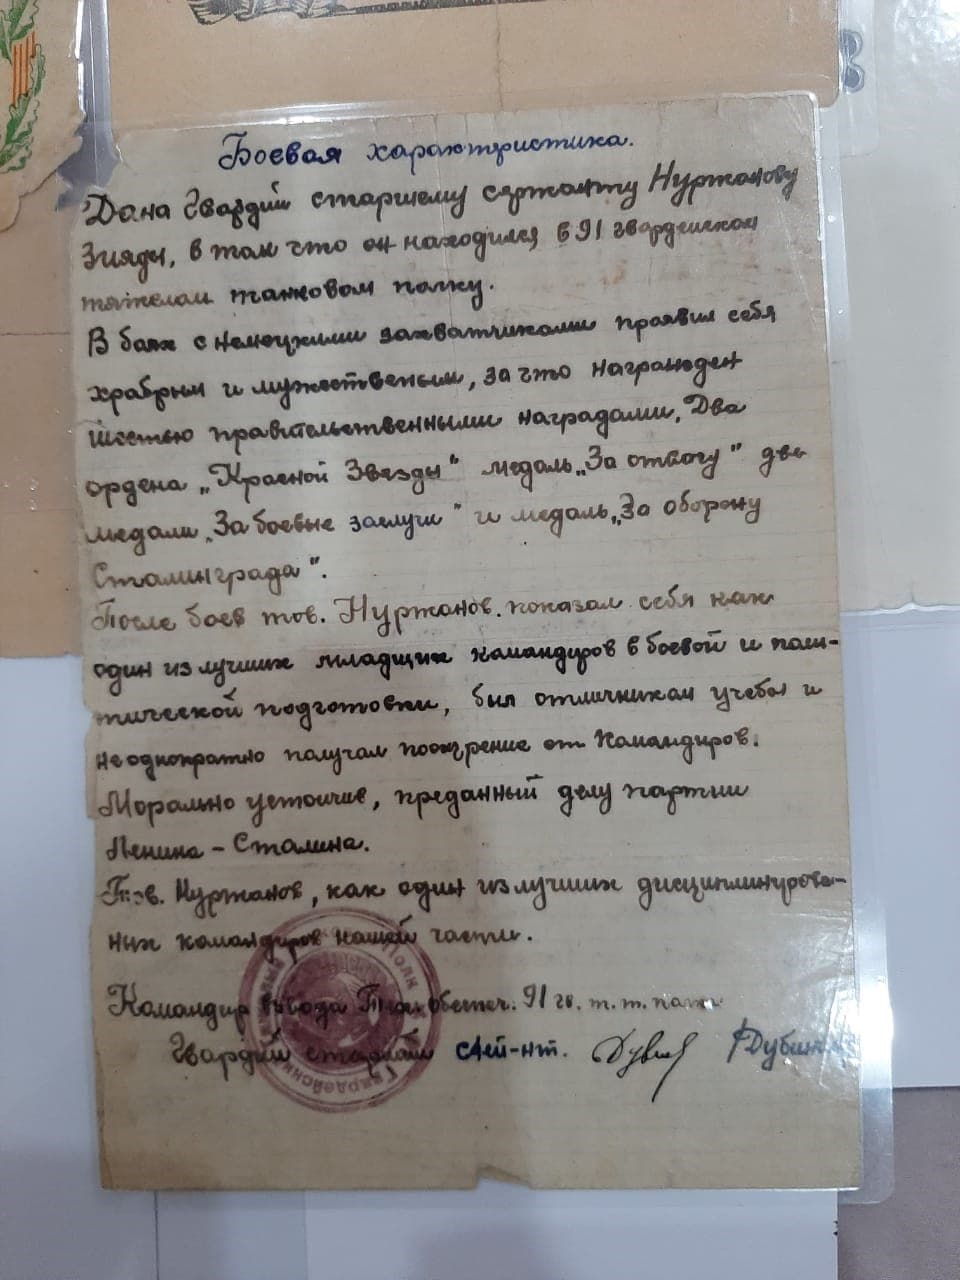 Боевая характеристика.
Дана Гвардий старшему сержанту Нуржанову
Зияды, в том что он находился в 91 гвардейском
тяжелом танковом полку.
В боях с немецкими захватчиками проявил себя
храбрым и мужественым, за что награжден
шестью правительственными наградами, Два
ордена „Красной Звезды" медаль „За отвагу" две
медали „За боевые заслуги" и медаль „За оборону
Сталинграда".
После боев тов. Нуржанов. показал себя как
один из лучших младших командиров в боевой и поли-
тической подготовки, был отличником учебы и
неоднократно получал поощрение от командиров.
Морально устойчив, преданный делу партии
Ленина - Сталина.
Тов. Нуржанов, как один из лучших дисциплинирова-
ных командиров нашей части.
Командир взвода обеспеч. 91 гв. т. т. полка
Гвардий старший лей-нт.
полк
Гвардейский